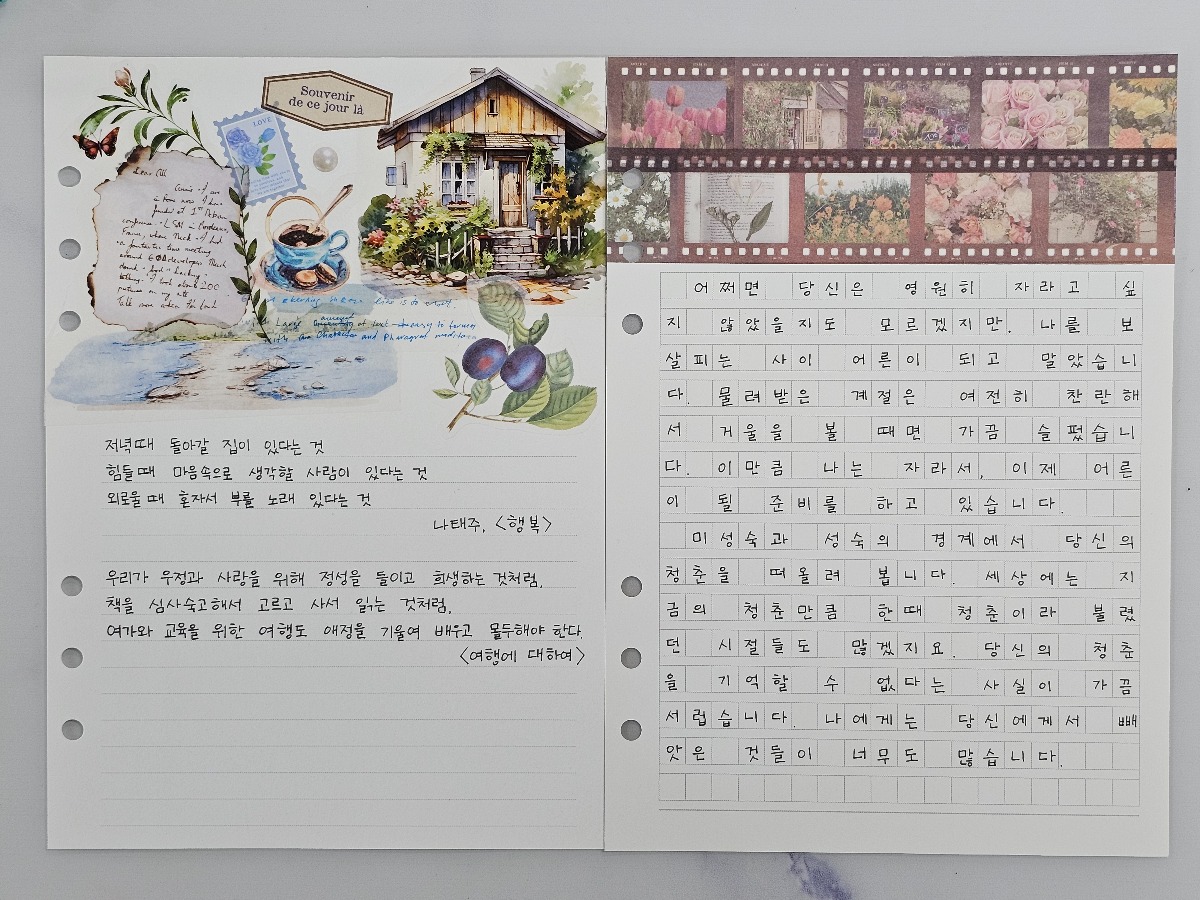 Souvenir
de ce jour là
LOVE
Dear
저녁때 돌아갈 집이 있다는 것
힘들때 마음속으로 생각할 사람이 있다는 것
외로울때 혼자서 부를 노래 있다는 것
나태주, <행복>
우리가 우정과 사랑을 위해 정성을 들이고 희생하는 것처럼,
책을 심사숙고해서 고르고 사서 읽는 것처럼,
여가와 교육을 위한 여행도 애정을 기울여 배우고 몰두해야 한다.
<여행에 대하여>
어쩌면 당신은 영원히 자라고 싶
지 않았을지도 모르겠지만. 나를 보
살피는 사이 어른이 되고 말았습니
다. 물려받은 계절은 여전히 찬란해
서 거울을 볼 때면 가끔 슬펐습니
다. 이만큼 나는 자라서, 이제 어른
이 될 준비를 하고 있습니다.
미성숙과 성숙의 경계에서 당신의
청춘을 떠올려 봅니다. 세상에는 지
금의 청춘만큼 한때 청춘이라 불렸
던 시절들도 많겠지요. 당신의 청춘
을 기억할 수 없다는 사실이 가끔
서럽습니다. 나에게는 당신에게서 빼
앗은 것들이 너무도 많습니다.